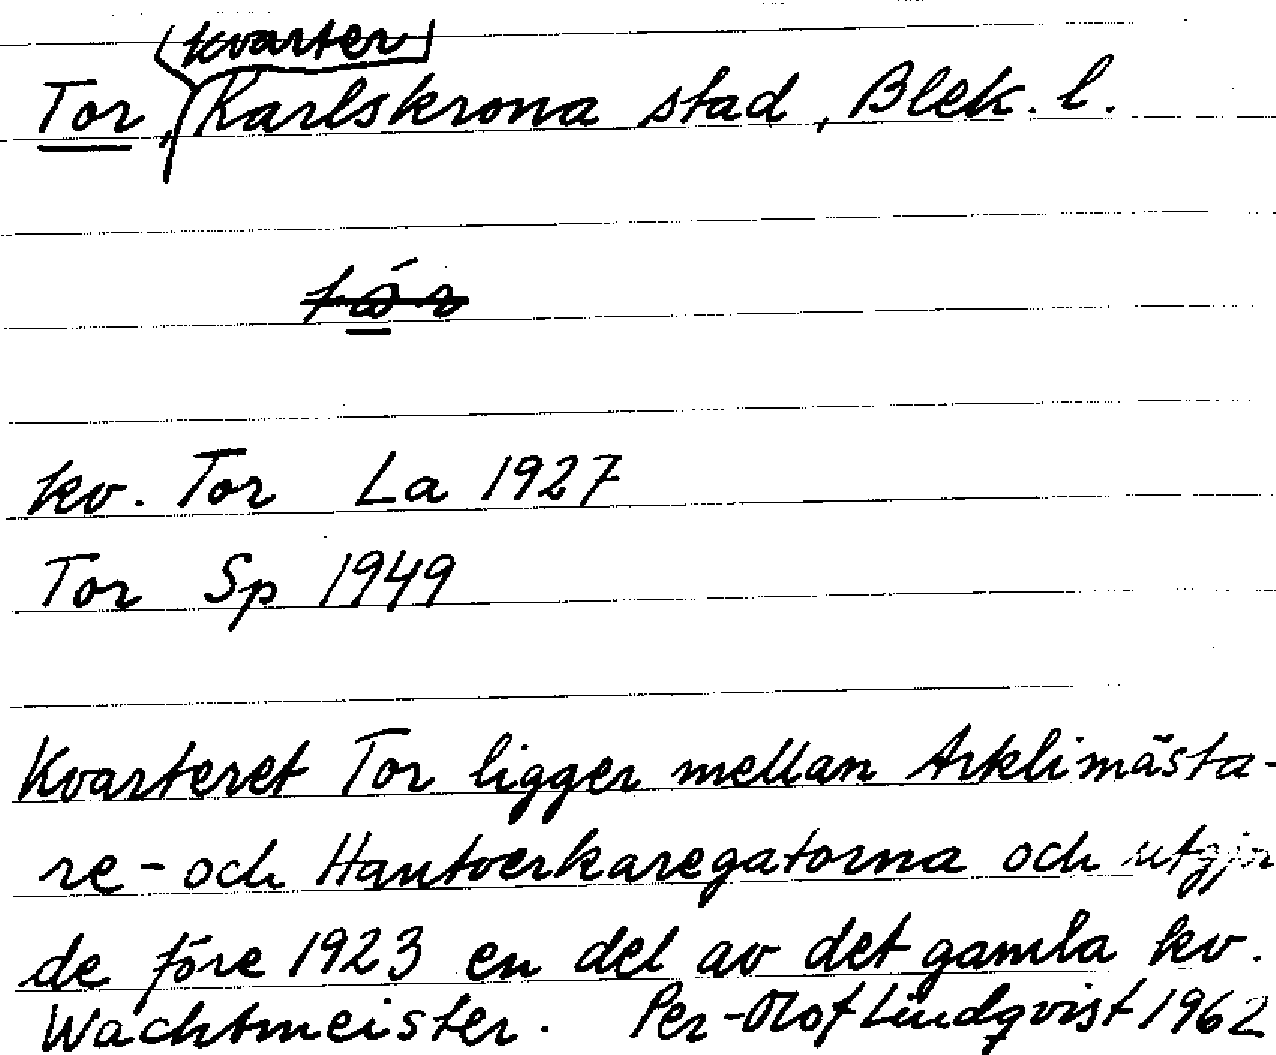 kvarter
Tor, Karlskrona stad, Blek. l.
kv. Tor La 1927
Tor Sp 1949
Kvarteret Tor ligger mellan Arklimästa-
re- och Hantverkaregatorna och utgjor
de före 1923 en del av det gamla kv.
Wachtmeister. Per-Olof Lindqvist 1962